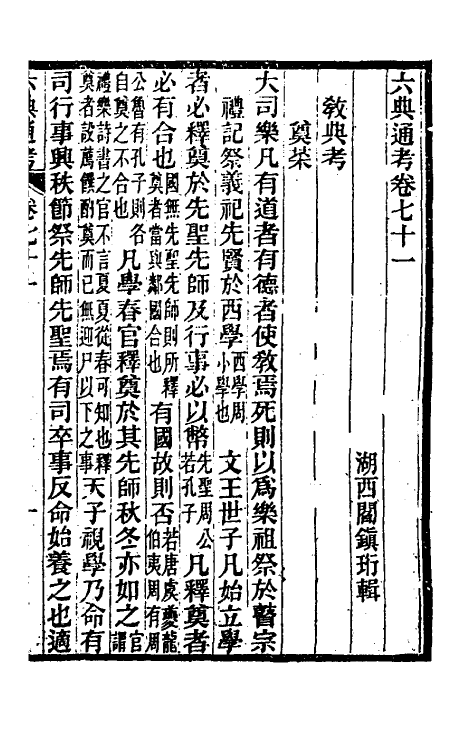 六典通考卷七十一
湖西閻鎮珩輯
敎典考
奠菜
大司樂凡有道者有德者使敎焉死則以爲樂祖祭於瞽宗
禮記祭義祀先賢於西學西學周小學也 文王世子凡始立學
者必釋奠於先聖先師及行事必以幣先聖周公若孔子 凡釋奠者
必有合也國無先聖先師則所釋奠者當與鄰國合也 有國故則否若唐虞夔龍伯夷周有周
公魯有孔子則各自奠之不合也 凡學春官釋奠於其先師秋冬亦如之官謂
禮樂詩書之官不言夏夏從春可知也釋奠者設薦饌酌奠而已無迎尸以下之事 天子視學乃命有
司行事興秩節祭先師先聖焉有司卒事反命始養之也適
六典通考 卷七十一 一